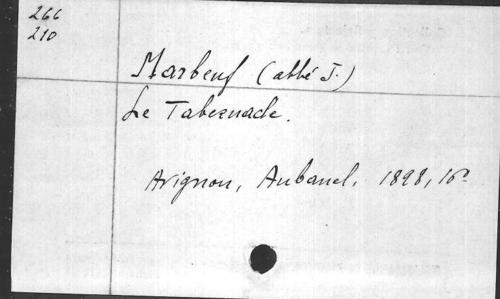 266
210
Marbeuf (abbé J.)
Le Tabernacle.
Avignon, Aubanel, 1898, 16º